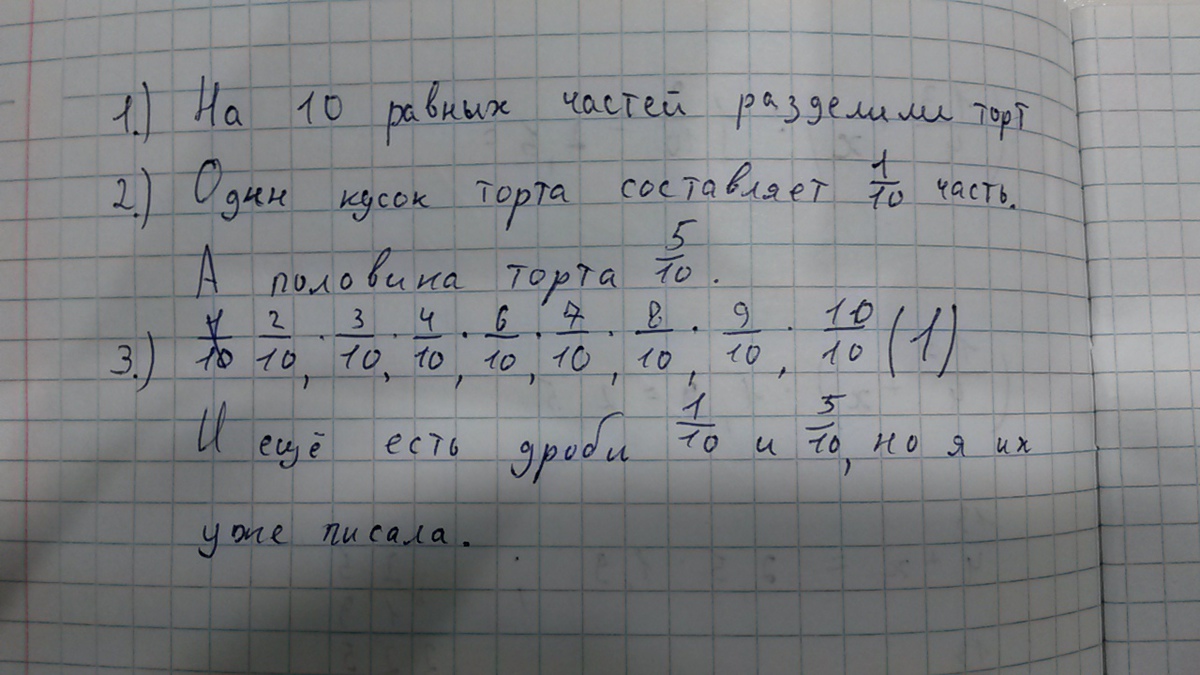 1.) На 10 равных частей разделили торт
2.) Один кусок торта составляет 1/10 часть.
А половина торта 5/10.
3.) 1/10 2/10, · 3/10, · 4/10, · 6/10, · 7/10, · 8/10, · 9/10, · 10/10 (1)
И ещё есть дроби 1/10 и 5/10, но я их
уже писала.